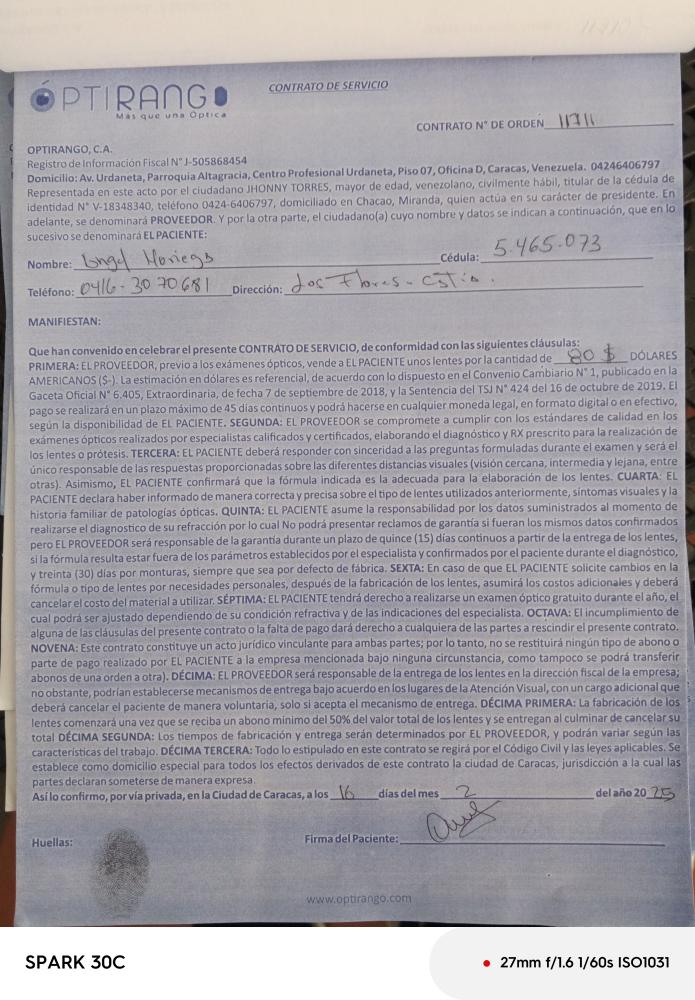 ÓPTIRANGO
Más que una Óptica
CONTRATO DE SERVICIO
CONTRATO N° DE ORDEN 11711
OPTIRANGO, C.A.
Registro de Información Fiscal N° J-505868454
Domicilio: Av. Urdaneta, Parroquia Altagracia, Centro Profesional Urdaneta, Piso 07, Oficina D, Caracas, Venezuela. 04246406797
Representada en este acto por el ciudadano JHONNY TORRES, mayor de edad, venezolano, civilmente hábil, titular de la cédula de
identidad N° V-18348340, teléfono 0424-6406797, domiciliado en Chacao, Miranda, quien actúa en su carácter de presidente. En
adelante, se denominará PROVEEDOR. Y por la otra parte, el ciudadano(a) cuyo nombre y datos se indican a continuación, que en lo
sucesivo se denominará EL PACIENTE:
Nombre: Cédula: 5.465.073
Teléfono: 0416-3070681 Dirección: Los Flores -
MANIFIESTAN:
Que han convenido en celebrar el presente CONTRATO DE SERVICIO, de conformidad con las siguientes cláusulas:
PRIMERA: EL PROVEEDOR, previo a los exámenes ópticos, vende a EL PACIENTE unos lentes por la cantidad de 80 $ DÓLARES
AMERICANOS ($-). La estimación en dólares es referencial, de acuerdo con lo dispuesto en el Convenio Cambiario N° 1, publicado en la
Gaceta Oficial N° 6.405, Extraordinaria, de fecha 7 de septiembre de 2018, y la Sentencia del TSJ N° 424 del 16 de octubre de 2019. El
pago se realizará en un plazo máximo de 45 días continuos y podrá hacerse en cualquier moneda legal, en formato digital o en efectivo,
según la disponibilidad de EL PACIENTE. SEGUNDA: EL PROVEEDOR se compromete a cumplir con los estándares de calidad en los
exámenes ópticos realizados por especialistas calificados y certificados, elaborando el diagnóstico y RX prescrito para la realización de
los lentes o prótesis. TERCERA: EL PACIENTE deberá responder con sinceridad a las preguntas formuladas durante el examen y será el
único responsable de las respuestas proporcionadas sobre las diferentes distancias visuales (visión cercana, intermedia y lejana, entre
otras). Asimismo, EL PACIENTE confirmará que la fórmula indicada es la adecuada para la elaboración de los lentes. CUARTA: EL
PACIENTE declara haber informado de manera correcta y precisa sobre el tipo de lentes utilizados anteriormente, síntomas visuales y la
historia familiar de patologías ópticas. QUINTA: EL PACIENTE asume la responsabilidad por los datos suministrados al momento de
realizarse el diagnostico de su refracción por lo cual No podrá presentar reclamos de garantía si fueran los mismos datos confirmados
pero EL PROVEEDOR será responsable de la garantía durante un plazo de quince (15) días continuos a partir de la entrega de los lentes,
si la fórmula resulta estar fuera de los parámetros establecidos por el especialista y confirmados por el paciente durante el diagnóstico,
y treinta (30) días por monturas, siempre que sea por defecto de fábrica. SEXTA: En caso de que EL PACIENTE solicite cambios en la
fórmula o tipo de lentes por necesidades personales, después de la fabricación de los lentes, asumirá los costos adicionales y deberá
cancelar el costo del material a utilizar. SÉPTIMA: EL PACIENTE tendrá derecho a realizarse un examen óptico gratuito durante el año, el
cual podrá ser ajustado dependiendo de su condición refractiva y de las indicaciones del especialista. OCTAVA: El incumplimiento de
alguna de las cláusulas del presente contrato o la falta de pago dará derecho a cualquiera de las partes a rescindir el presente contrato.
NOVENA: Este contrato constituye un acto jurídico vinculante para ambas partes; por lo tanto, no se restituirá ningún tipo de abono o
parte de pago realizado por EL PACIENTE a la empresa mencionada bajo ninguna circunstancia, como tampoco se podrá transferir
abonos de una orden a otra). DÉCIMA: EL PROVEEDOR será responsable de la entrega de los lentes en la dirección fiscal de la empresa;
no obstante, podrían establecerse mecanismos de entrega bajo acuerdo en los lugares de la Atención Visual, con un cargo adicional que
deberá cancelar el paciente de manera voluntaria, solo si acepta el mecanismo de entrega. DÉCIMA PRIMERA: La fabricación de los
lentes comenzará una vez que se reciba un abono mínimo del 50% del valor total de los lentes y se entregan al culminar de cancelar su
total DÉCIMA SEGUNDA: Los tiempos de fabricación y entrega serán determinados por EL PROVEEDOR, y podrán variar según las
características del trabajo. DÉCIMA TERCERA: Todo lo estipulado en este contrato se regirá por el Código Civil y las leyes aplicables. Se
establece como domicilio especial para todos los efectos derivados de este contrato la ciudad de Caracas, jurisdicción a la cual las
partes declaran someterse de manera expresa.
Así lo confirmo, por vía privada, en la Ciudad de Caracas, a los 16 días del mes 2 del año 2025
Huellas: Firma del Paciente:
www.optirango.com
SPARK 30C
27mm f/1.6 1/60s ISO1031